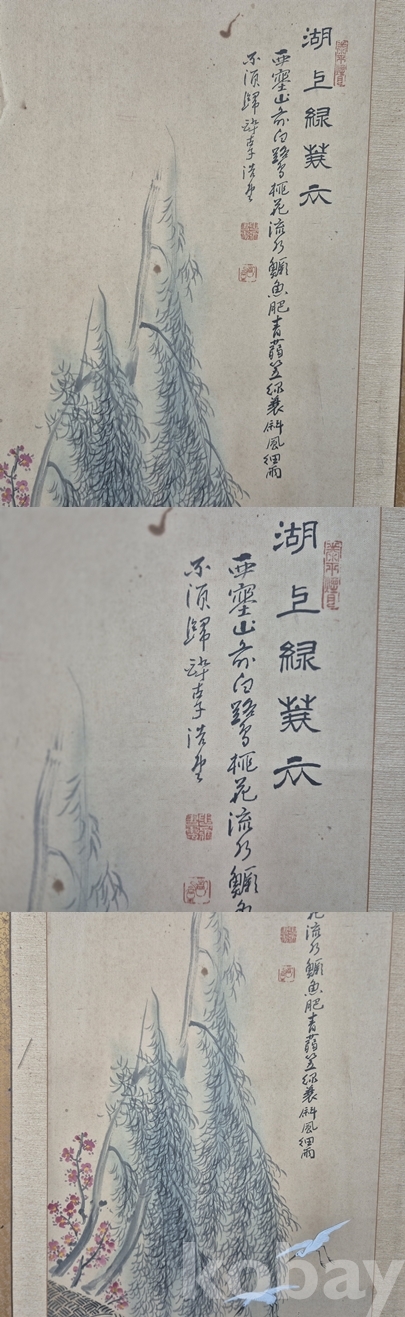 湖上綠蓑衣
西塞山前白鷺桃花流水鱖魚肥青蒻笠綠蓑斜風細雨
不須歸
湖上綠蓑衣
西塞山前白鷺桃花流水鱖
不須歸
花流水鱖魚肥青蒻笠綠蓑斜風細雨
kobay